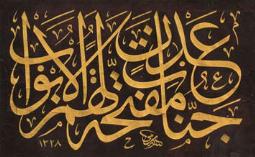 جنّات عدن مفتّحة لهم الابواب
١٣٢٨